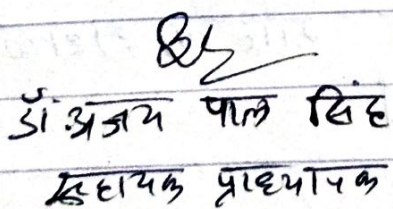 डॉ. अजय पाल सिंह
सहायक प्राध्यापक